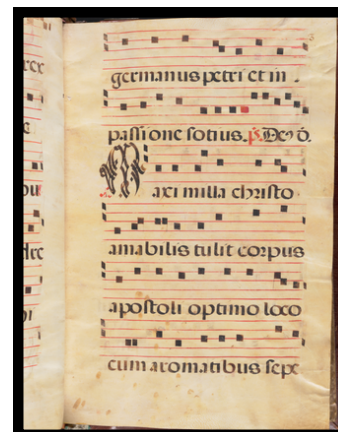 germanus petri et in
passione socius. p. Deo ō.
Maximilla christo
amabilis tulit corpus
apostoli optimo loco
cum aromatibus sepe